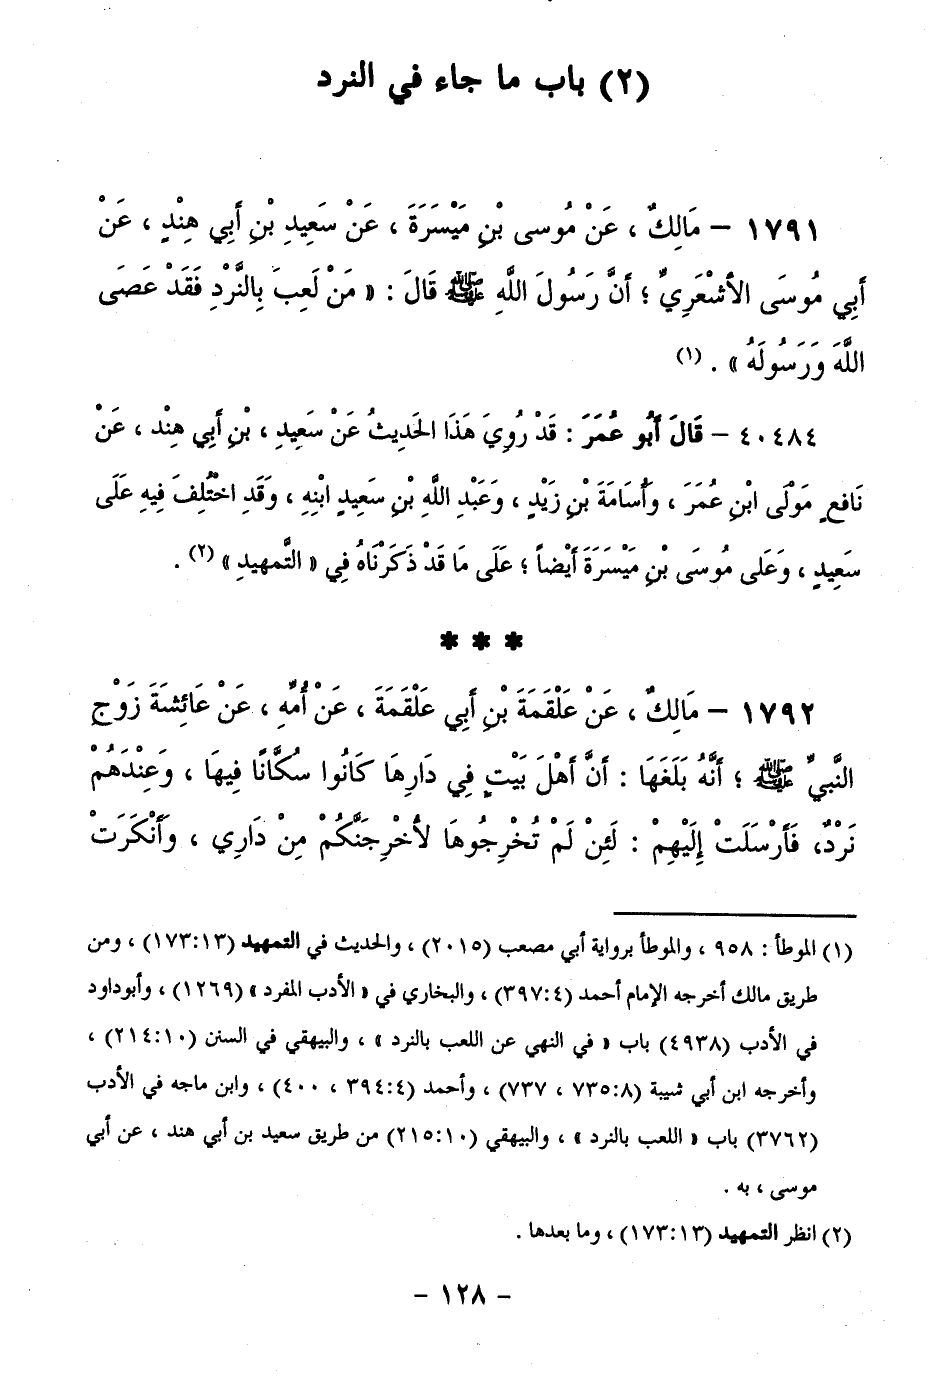 (٢) باب ما جاء في النرد
١٧٩١ – مَالِكٌ ، عَنْ مُوسى بْنِ مَيْسَرَةَ ، عَنْ سَعِيدِ بْنِ أَبِي هِنْدٍ ، عَنْ
أَبِي مُوسَى الأشْعَرِيِّ ؛ أنَّ رَسُولَ اللَّهِ ﷺ قَالَ : « مَنْ لَعِبَ بِالنَّرْدِ فَقَدْ عَصَى
اللَّهَ وَرَسُولَهُ » . (١)
٤٠٤٨٤ – قَالَ أَبُو عُمَرَ : قَدْ رُوِيَ هَذَا الحَدِيثُ عَنْ سَعِيدِ ، بْنِ أَبِي هِنْد ، عَنْ
نَافعٍ مَوْلَى ابْنِ عُمَرَ ، وَأُسَامَةَ بْنِ زَيْدٍ ، وَعَبْدِ اللَّهِ بْنِ سَعِيدٍ ابْنِهِ ، وَقَدِ اخْتُلِفَ فِيهِ عَلَى
سَعِيدٍ ، وَعَلَى مُوسَى بْنِ مَيْسَرَةَ أَيْضاً ؛ عَلَى مَا قَدْ ذَكَرْنَاهُ فِي « التَّمهِيدِ » (٢) .
* * *
١٧٩٢ – مَالِكٌ ، عَنْ عَلْقَمَةَ بْنِ أَبِي عَلْقَمَةَ ، عَنْ أُمِّهِ ، عَنْ عَائِشَةَ زَوْجِ
النَّبِيِّ ﷺ ؛ أَنَّهُ بَلَغَهَا : أنَّ أهْلَ بَيْتٍ فِي دَارِهَا كَانُوا سُكَّانًا فِيهَا ، وَعِنْدَهُمْ
نَرْدٌ، فَأَرْسَلَتْ إِلَيْهِمْ : لَئِنْ لَمْ تُخْرِجُوهَا لأخْرِجَنَّكُمْ مِنْ دَارِي ، وَأَنْكَرَتْ
(١) الموطأ : ٩٥٨ ، والموطأ برواية أبي مصعب (٢٠١٥) ، والحديث في التمهيد (١٧٣:١٣) ، ومن
طريق مالك أخرجه الإمام أحمد (٣٩٧:٤) ، والبخاري في « الأدب المفرد » (١٢٦٩) ، وأبوداود
في الأدب (٤٩٣٨) باب « في النهي عن اللعب بالنرد » ، والبيهقي في السنن (٢١٤:١٠) ،
وأخرجه ابن أبي شيبة (٧٣٥:٨ ، ٧٣٧) ، وأحمد (٣٩٤:٤ ، ٤٠٠) ، وابن ماجه في الأدب
(٣٧٦٢) باب « اللعب بالنرد » ، والبيهقي (٢١٥:١٠) من طريق سعيد بن أبي هند ، عن أبي
موسى ، به .
(٢) انظر التمهيد (١٧٣:١٣) ، وما بعدها .
– ١٢٨ –